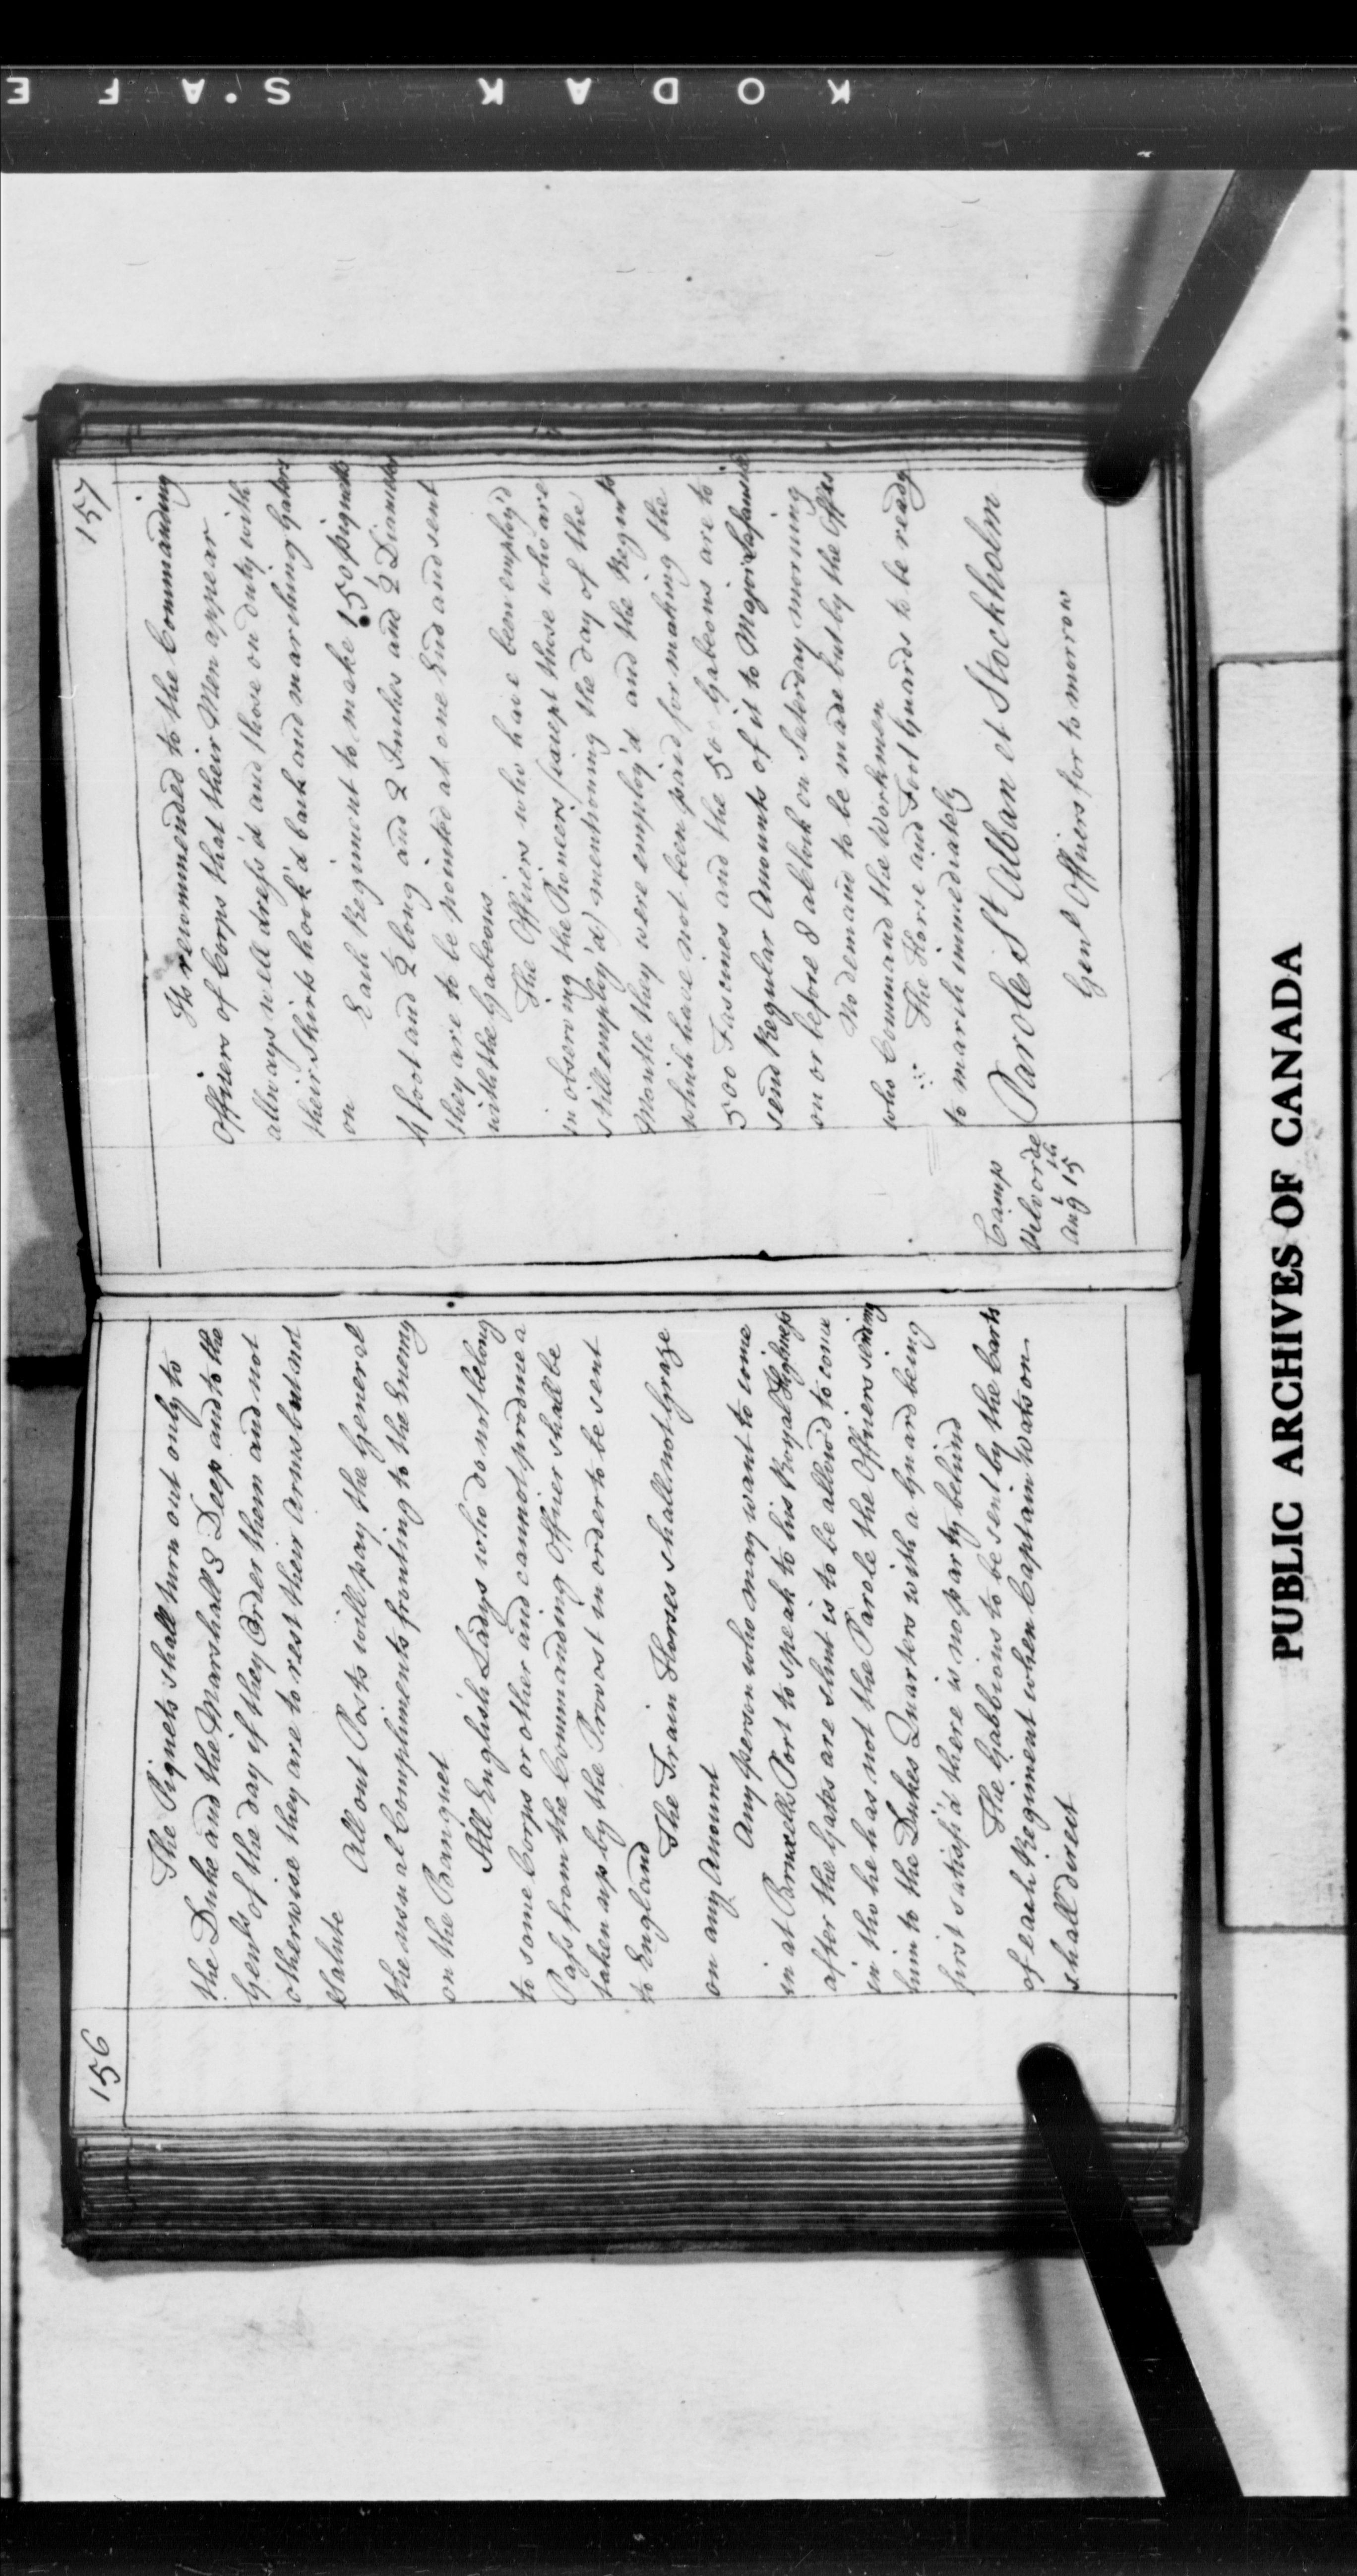 156
The Piquets shall turn out only to
the Duke and the Marshall 3 Deep and to the
Genls of the day if they Order them and not
otherwise they are to rest their Arms but not
Salute
All out Posts will pay the General
the usual Compliments fronting to the Enemy
on the Banquet
All English Ladys who do not belong
to some Corps or other and cannot produce a
Pass from the Commanding Officer shall be
taken up by the Provost in order to be sent
to England
The Train Horses shall not Graze
on any Amount
Any person who may want to come
in at Port to speak to his Royal Highness
after the Gates are shut is to be allow'd to come
in tho he has not the Parole the Officers sending
him to the Dukes Quarters with a Guard being
first satisfy'd there is no party behind
The Gabbions to be sent by the Carts
of each Regiment when Captain Watson
shall direct
157
Its recommended to the Commanding
Officers of Corps that their Men appear
allways well dress'd and those on duty with
their Skirts hook'd back and marching Gaters
on
Each Regiment to make 150 piquets
4 foot and ½ long and 2 Inches and ½ Diameter
they are to be pointed at one End and sent
with the Gabeons
The Officers who have been employ'd
in observing the Pioneers (except those who are
still employ'd) mentioning the day of the
Month they were employ'd and the Regimts
which have not been paid for making the
500 Fascines and the 50 Gabeons are to
send Regular Amounts of it to Major
on or before 8 a Clock on Saterday morning
No demand to be made but by the Offrs
who Command the Workmen
The Horse and Foot Guards to be ready
to march immediately
Camp
Vilvorde
Augt 15th
Parole St Alban et Stockholm
Genl Officers for to morrow
PUBLIC ARCHIVES OF CANADA
KODAK S'AFE